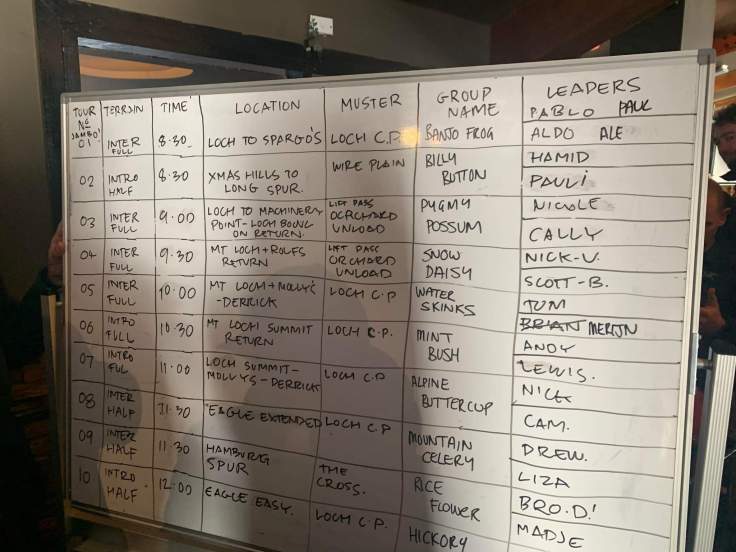 TOUR TERRAIN TIME LOCATION MUSTER GROUP NAME LEADERS
Nº
JAMBO!
PABLO PAUL
01 INTER FULL 8.30 LOCH TO SPARGO'S LOCH C.P. BANJO FROG ALDO ALE
02 INTRO HALF 8.30 XMAS HILLS TO LONG SPUR. WIRE PLAIN BILLY BUTTON HAMID
PAULI
03 INTER FULL 9.00 LOCH TO MACHINERY POINT-LOCH BOWL ON RETURN. LIFT PASS OCRCHARD UNLOAD PYGMY POSSUM NICOLE
CALLY
04 INTER FULL 9.30 MT LOCH + ROLFS RETURN LIFT PASS ORCHARD UNLOAD SNOW DAISY NICK-V.
SCOTT-B.
05 INTER FULL 10.00 MT LOCH + MOLLY'S -DERRICK LOCH C.P WATER SKINKS TOM
BRIAN MERIJN
06 INTRO FULL 10.30 MT LOCH SUMMIT RETURN LOCH C.P. MINT BUSH ANDY
LEWIS.
07 INTRO FUL 11.00 LOCH SUMMIT- MOLLYS-DERRICK LOCH C.P ALPINE BUTTERCUP NICK
CAM.
08 INTER HALF 11.30 EAGLE EXTENDED LOCH C.P MOUNTAIN CELERY DREW.
LIZA
09 INTER HALF 11.30 HAMBURG SPUR THE CROSS. RICE FLOWER BRO.D!
10 INTRO HALF 12.00 EAGLE EASY. LOCH C.P. HICKORY MADJE